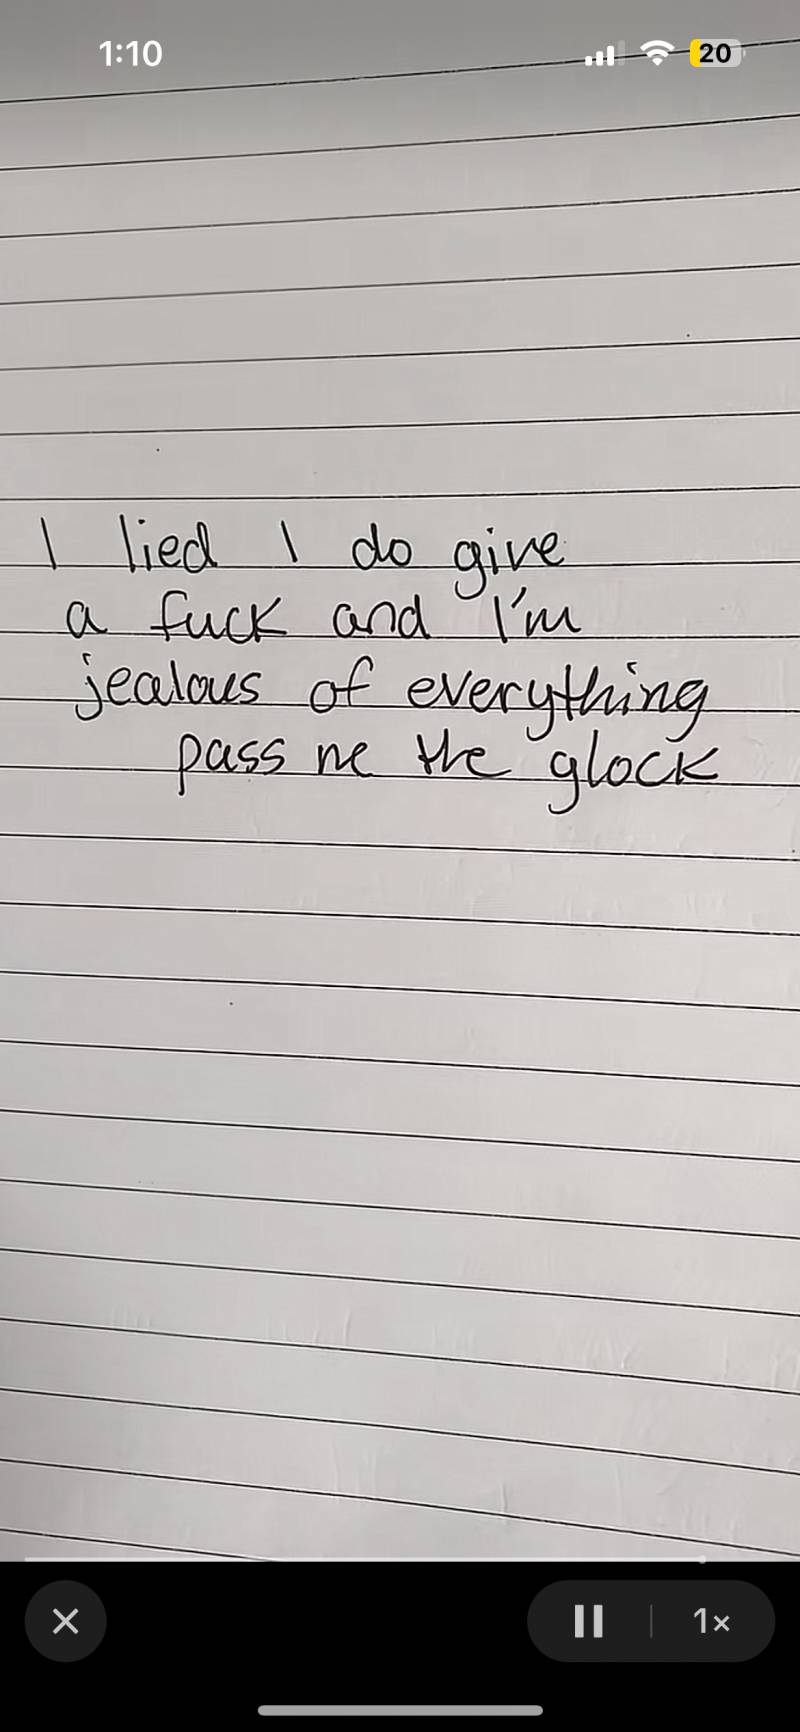 1:10
20
I lied I do give
a fuck and I'm
jealous of everything
pass me the glock
1×